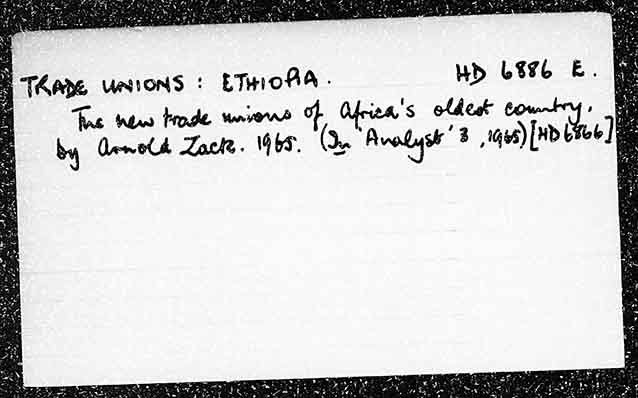 TRADE UNIONS : ETHIOPIA. HD 6886 E.
The new trade unions of Africa's oldest country,
by Arnold Zack. 1965. (In 'Analyst' 3, 1965) [HD 6866]